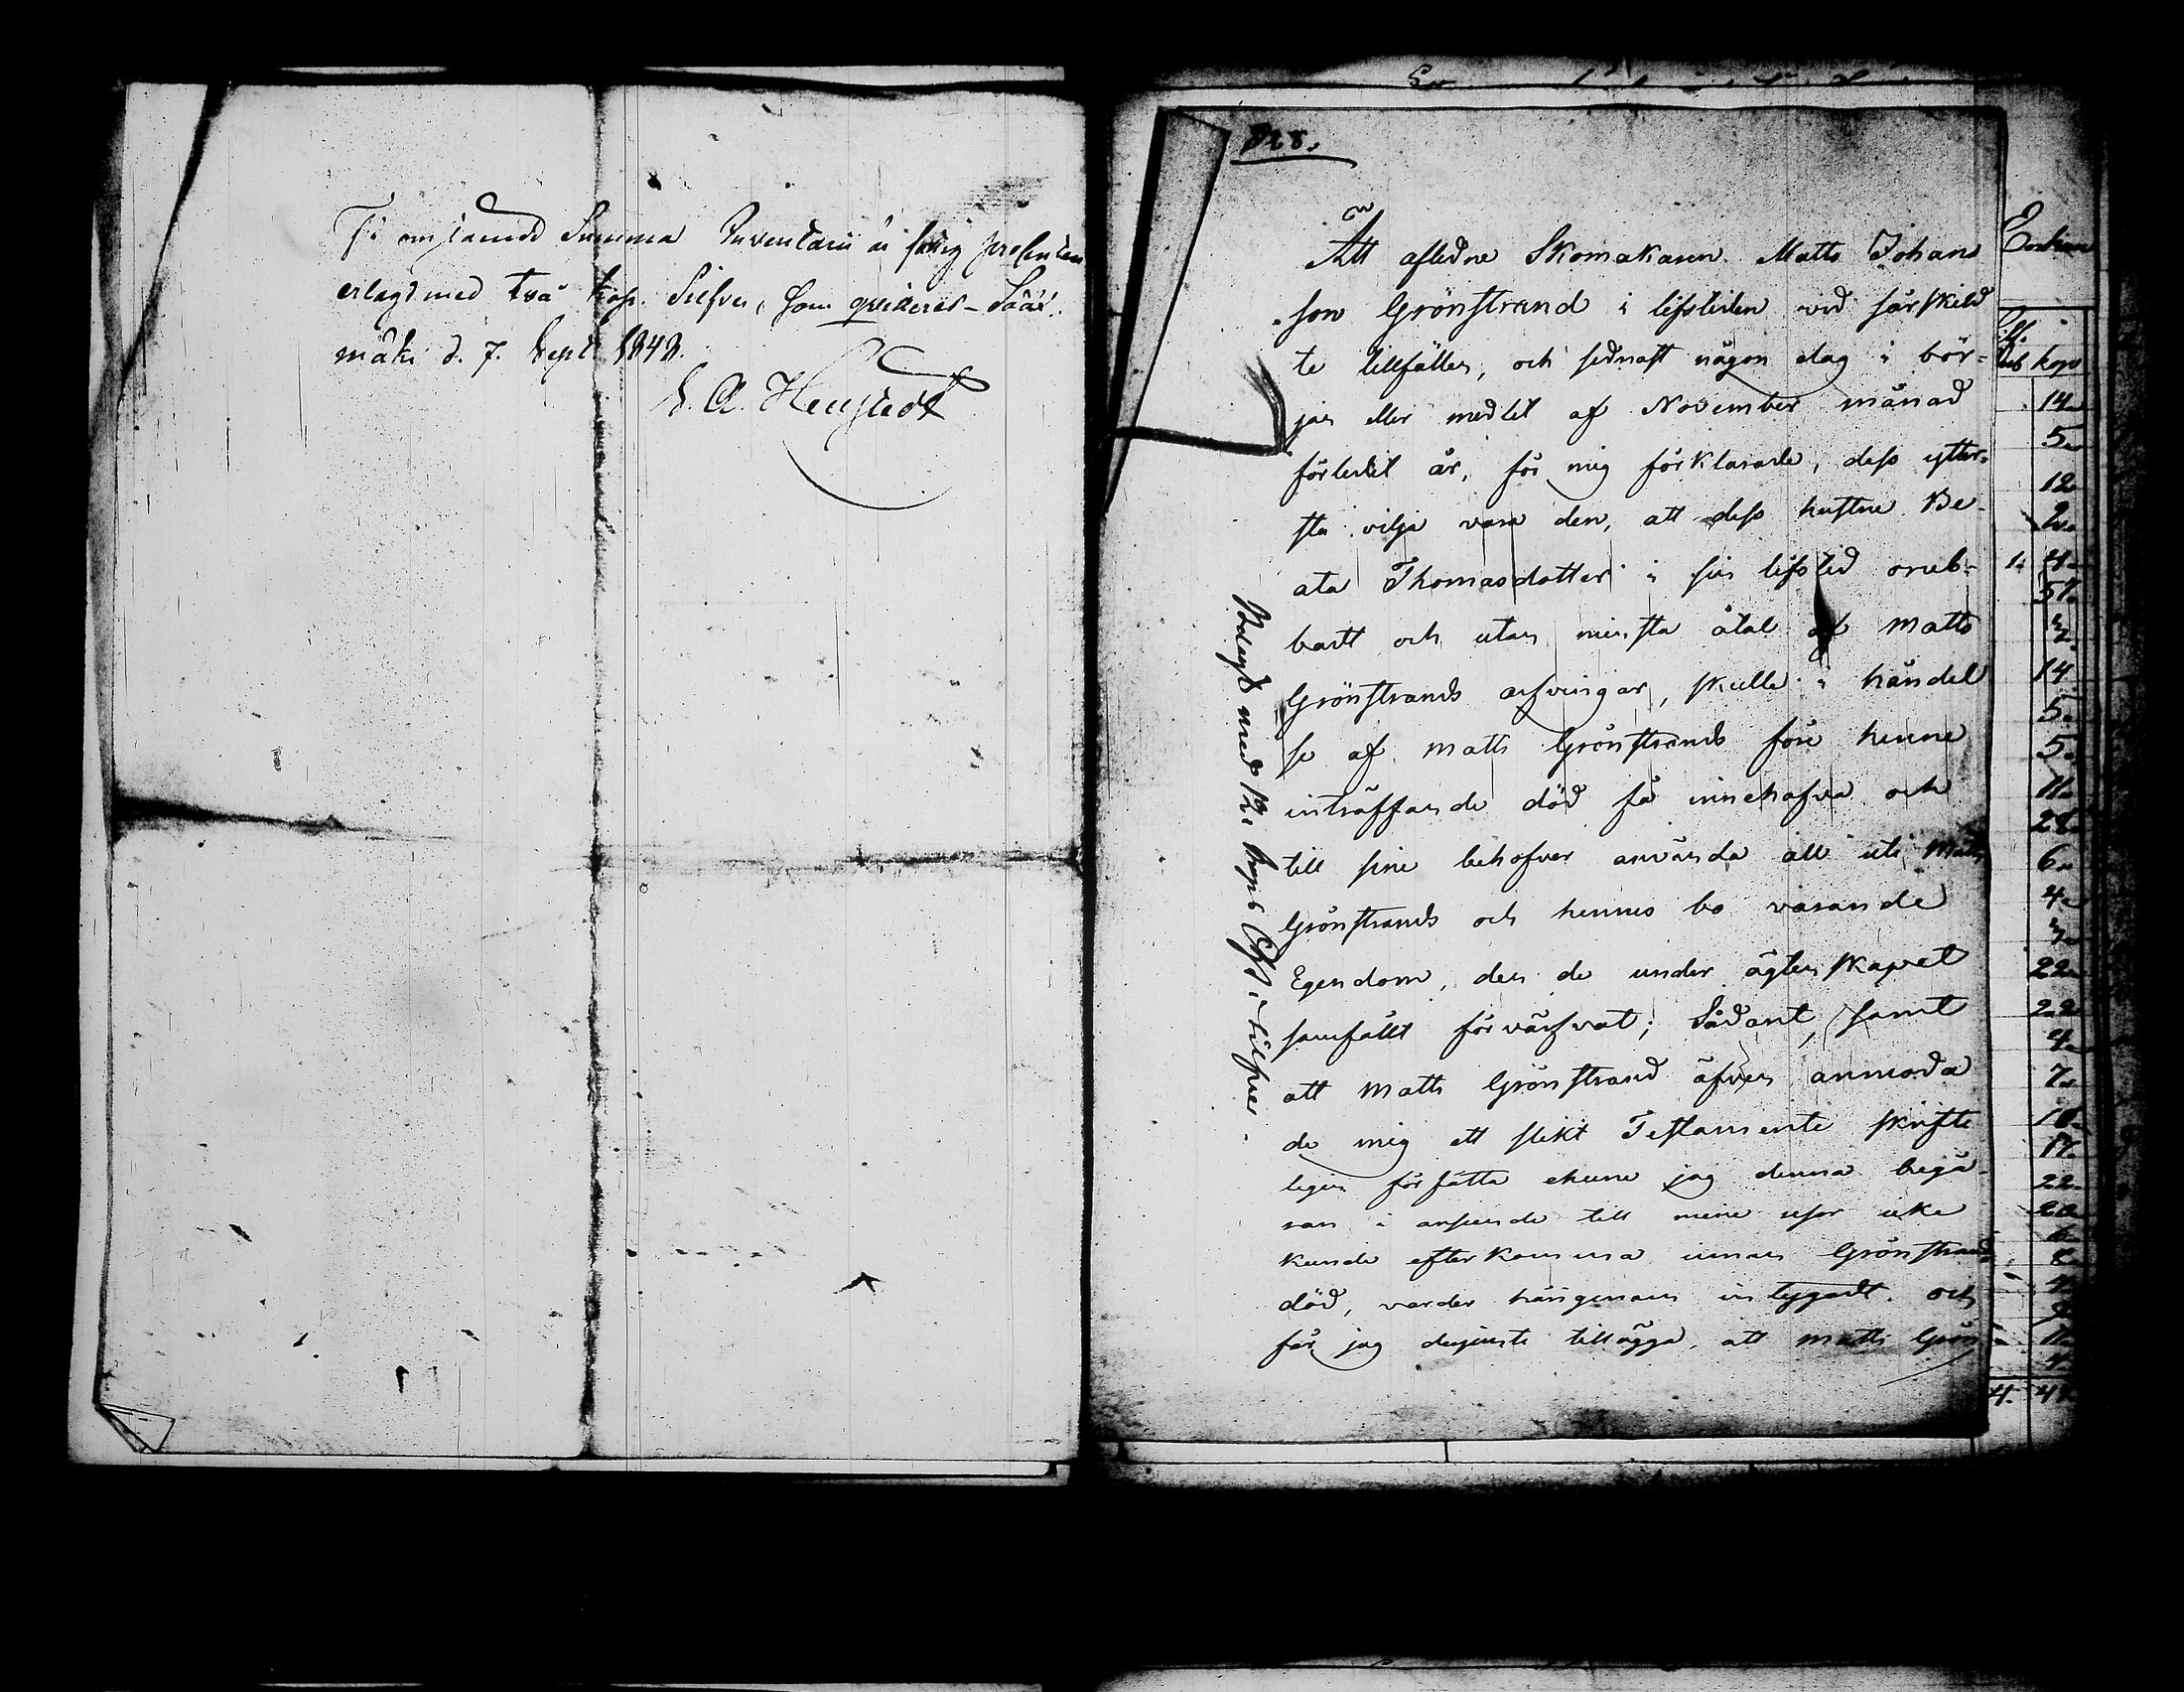 summa Inventarii är
erlagd med två kop. Silfver, som qvitteras - Sääx-
mäki d. 7. Sept 1848.
128.
Att aflidne Skomakaren Matts Johans
son Grönstrand i lifstiden vid särskild
te tillfällen, och sednast någon dag i bör-
jan eller medlet af November månad
förledet år, för mig förklarade, dess ytter-
sta vilja vara den, att dess hustru Be-
ata Thomasdotter i sin lifstid orub-
badt och utan minsta åtal af Matts
Grönstrands arfvingar, skulle i händel
se af Matts Grönstrands före henne
inträffande död få innehafva och
till sine behofver använda all uti Matts
Grönstrands och hennes bo varande
Egendom, den de under ägtenskapet
samfällt förvärfvat; Sådant, samt
att Matts Grönstrand äfven anmoda
de mig ett slikt Testamente skrifte
ligen författa ehuru jag denna begä-
ran i anseende till mine resor icke
kunde efterkomma innan Grönstrands
död, varder härigenom intygadt. och
får jag dessutom tillägga, att Matts Grön
Belagd med 12. kop. Chs silfver.
Silf.
Rub kop
14.
5.
12
2.
1. 4.
51.
3.
14
5.
5.
11.
28.
6.
4.
3.
22.
22
4.
7.
18.
17.
22.
20.
6.
8.
4.
11.
4.